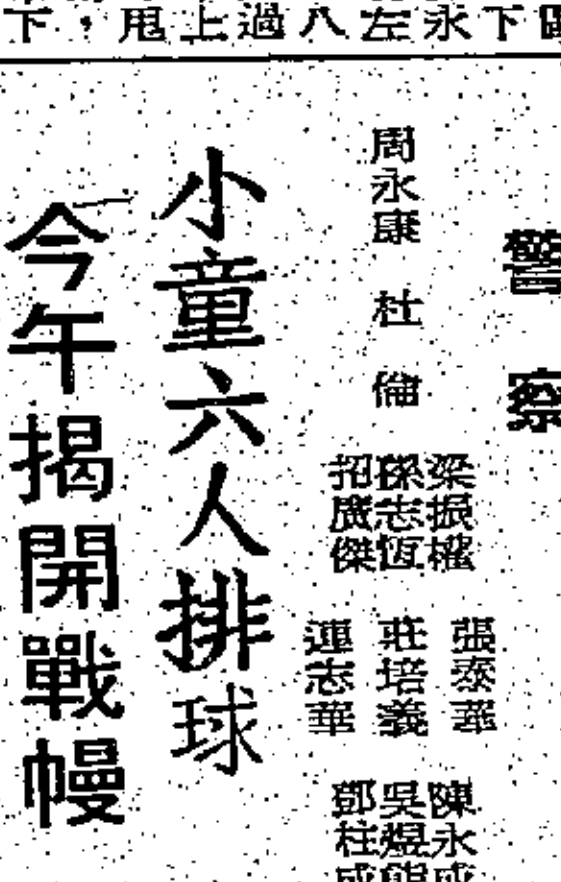 下，甩上過八左永下
警察
周永康
杜倫
梁振權
孫志恆
招廣傑
張泰華
莊培義
連志華
陳永
吳煜
鄧柱
小童六人排球
今午揭開戰幔